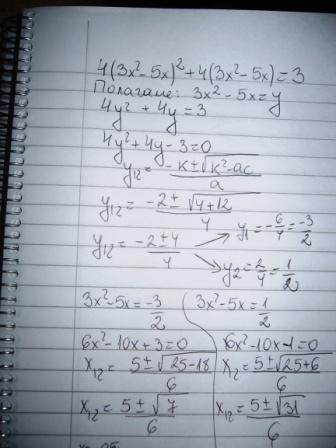 4(3x²-5x)²+4(3x²-5x)=3
Полагаме: 3x²-5x=y
4y²+4y=3
4y²+4y-3=0
y₁₂=(-к±√(к²-ac))/a
y₁₂=(-2±√(4+12))/4
y₁=-6/4=-3/2
y₁₂=(-2±4)/4
y₂=2/4=1/2
3x²-5x=-3/2
6x²-10x+3=0
x₁₂=(5±√(25-18))/6
x₁₂=(5±√7)/6
3x²-5x=1/2
6x²-10x-1=0
x₁₂=(5±√(25+6))/6
x₁₂=(5±√31)/6